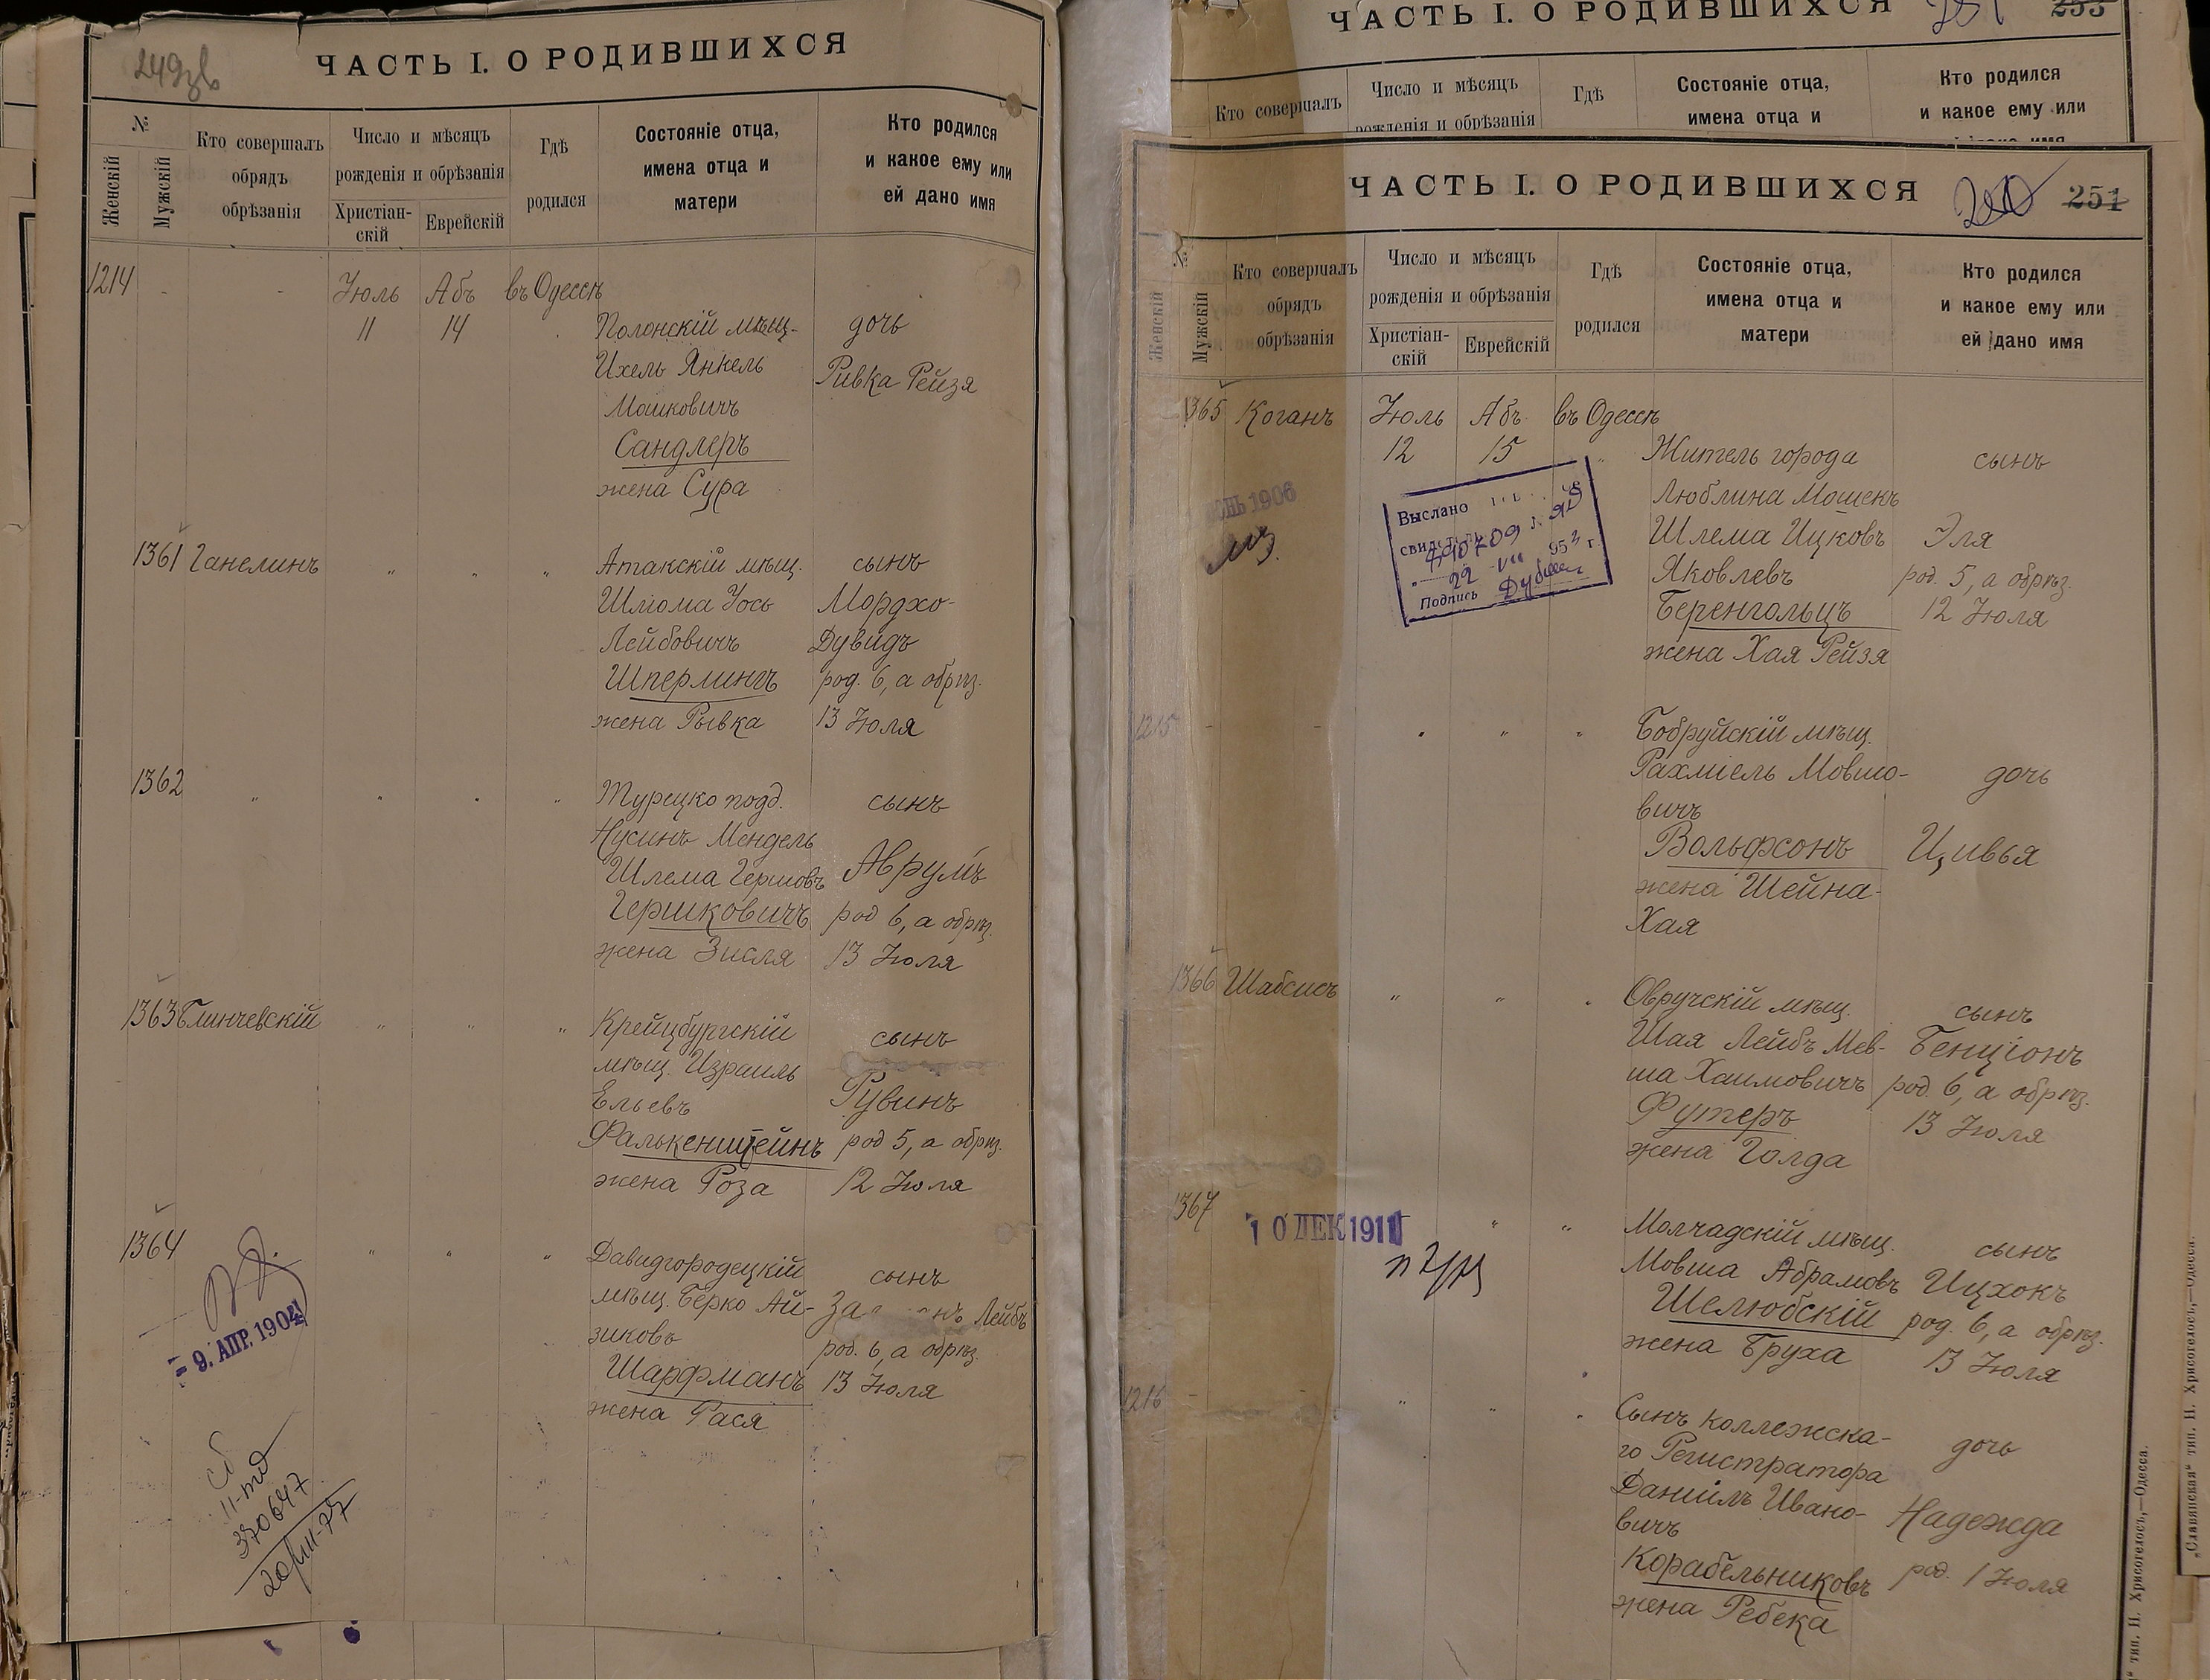 249
ЧАСТЬ I. О РОДИВШИХСЯ
№
Женскій
Мужскій
Кто совершалъ
обрядъ
обрѣзанія
Число и мѣсяцъ
рожденія и обрѣзанія
Христіан-
скій
Еврейскій
Гдѣ
родился
Состояніе отца,
имена отца и
матери
Кто родился
и какое ему или
ей дано имя
1214 - - Іюль Абъ въ Одессѣ
11 14 Полонскій мѣщ- дочь
Ихель Янкель Ривка Рейзя
Мошковичъ
Сандлеръ
жена Сура
1361 Ганелинъ " " " Атакскій мѣщ. сынъ
Шлома Іось Мордхо-
Лейбовичъ Дувидъ
Шперлингъ род. 6, а обрѣз.
жена Рывка 13 Іюля
1362 " " " " Турецко подд. сынъ
Нусинъ Мендель
Шлема Гершовъ Аврумъ
Гершковичъ род 6, а обрѣз.
жена Зисля 13 Іюля
1363 Блинчевскій " " " Крейцбургскій сынъ
мѣщ. Израиль
Ельевъ Рувинъ
Фалькенштейнъ род 5, а обрѣз.
жена Роза 12 Іюля
1364 " " " Давидгородецкій сынъ
мѣщ. Берко Ай- Лейбъ
зиковъ род. 6, а обрѣз.
Шарфманъ 13 Іюля
жена Рася
9. АПР. 1904
11-тд
370647
ЧАСТЬ I. О РОДИВШИХСЯ
251 253
Кто совершалъ
Число и мѣсяцъ
рожденія и обрѣзанія
Гдѣ
Состояніе отца,
имена отца и
Кто родился
и какое ему или
ЧАСТЬ I. О РОДИВШИХСЯ
250 251
№
Женскій
Мужскій
Кто совершалъ
обрядъ
обрѣзанія
Число и мѣсяцъ
рожденія и обрѣзанія
Христіан-
скій
Еврейскій
Гдѣ
родился
Состояніе отца,
имена отца и
матери
Кто родился
и какое ему или
ей дано имя
1365 Коганъ Іюль Абъ въ Одессѣ
12 15 " Житель города сынъ
Люблина Мошекъ
Шлема Ицковъ Эля
Яковлевъ род. 5, а обрѣз.
Беренгольцъ 12 Іюля
жена Хая Рейзя
1906
Выслано
свидѣтель
490709
22 VII 195 г.
Подпись
1215 - - " " " Бобруйскій мѣщ.
Рахміель Мовшо- дочь
вичъ
Вольфсонъ Цивья
жена Шейна-
Хая
1366 Шабсисъ " " " Овручскій мѣщ. сынъ
Шая Лейбъ Мев- Бенціонъ
ша Хаимовичъ род 6, а обрѣз.
Футеръ 13 Іюля
жена Голда
1367 " " Молчадскій мѣщ. сынъ
10 ДЕК 1911
Мовша Абрамовъ Ицхокъ
Шелюбскій род. 6, а обрѣз.
жена Бруха 13 Іюля
1216 - " " " Сынъ коллежска- дочь
го Регистратора
Даніилъ Ивано- Надежда
вичъ
Корабельниковъ род. 1 Іюля
жена Ребека
тип. Н. Хрисогелосъ,—Одесса.
„Славянская“ тип. Н. Хрисогелосъ,—Одесса.